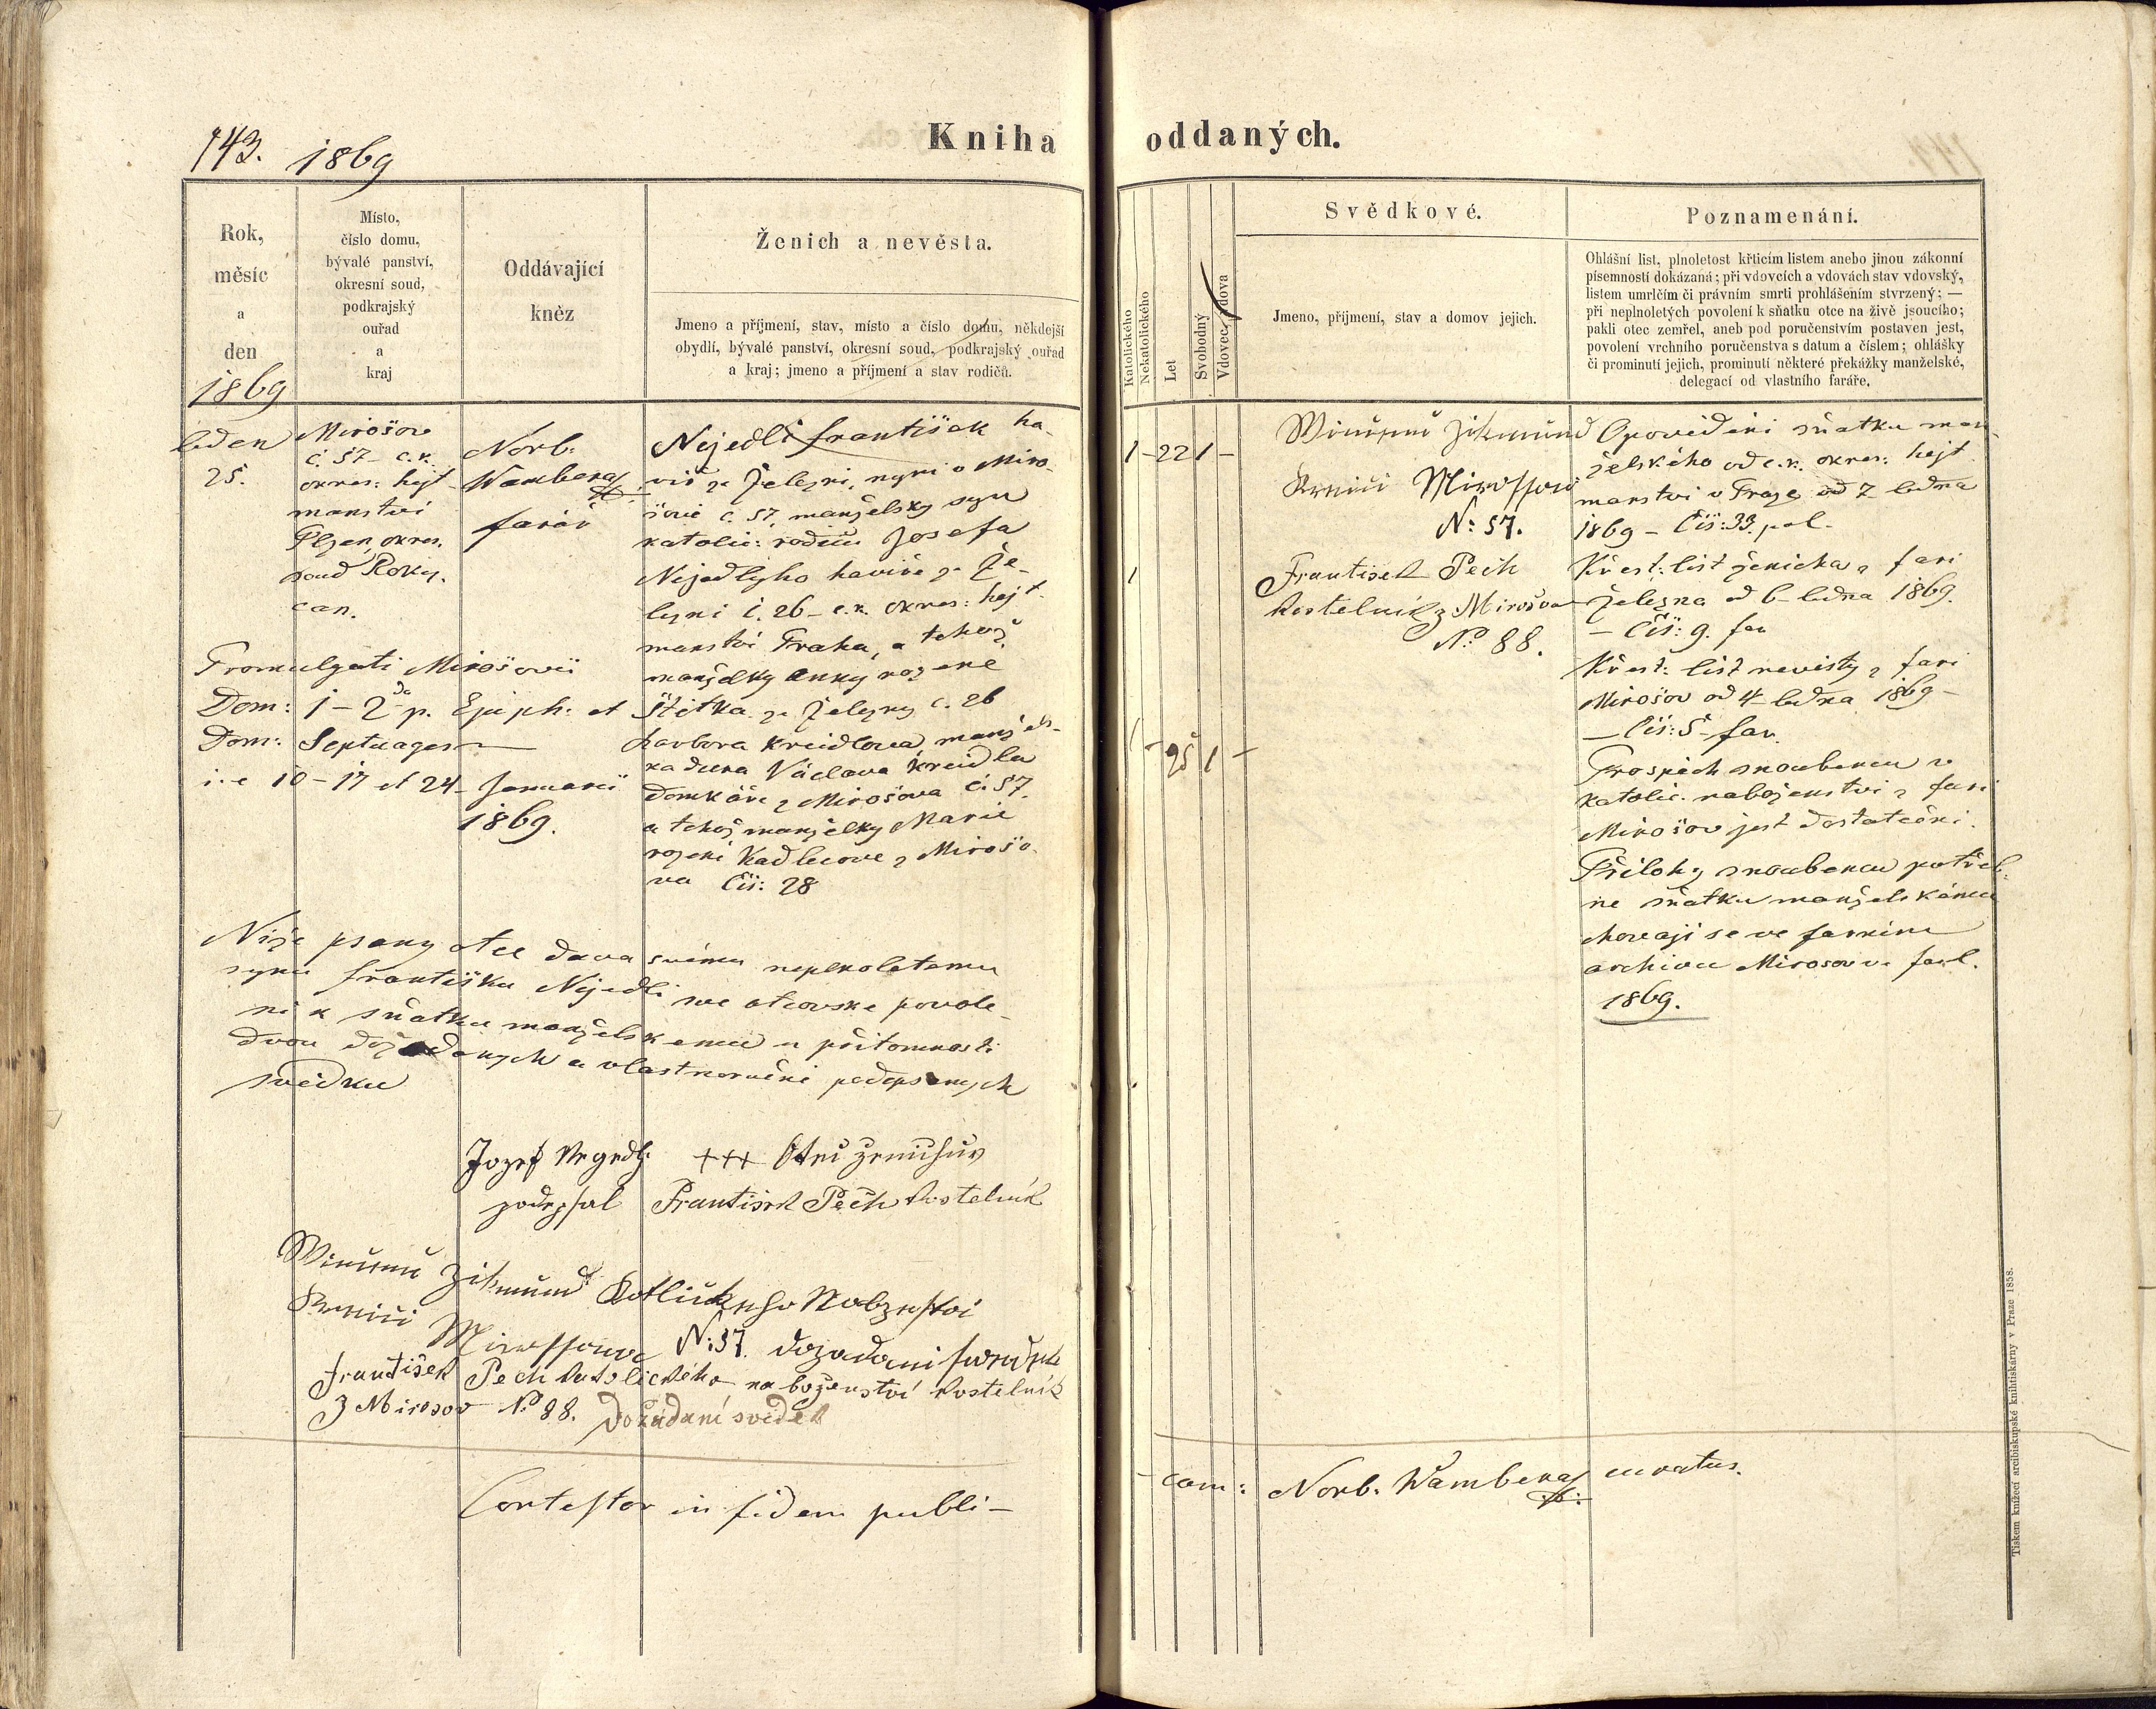 143. 1869
Kniha oddaných.
Rok,
měsíc
a
den
1869
Místo,
číslo domu,
bývalé panství,
okresní soud,
podkrajský
ouřad
a
kraj
Oddávající
kněz
Ženich a nevěsta.
Jmeno a příjmení, stav, místo a číslo domu, někdejší
obydlí, bývalé panství, okresní soud, podkrajský ouřad
a kraj; jmeno a příjmení a stav rodičů.
Katolického
Nekatolického
Let
Svobodný
Vdovec, vdova
Svědkové.
Jmeno, příjmení, stav a domov jejich.
Poznamenání.
Ohlášní list, plnoletost křticím listem anebo jinou zákonní
písemností dokázaná; při vdovcích a vdovách stav vdovský,
listem umrlčím či právním smrti prohlášením stvrzený; —
při neplnoletých povolení k sňatku otce na živě jsoucího;
pakli otec zemřel, aneb pod poručenstvím postaven jest,
povolení vrchního poručenstva s datum a číslem; ohlášky
či prominutí jejich, prominutí některé překážky manželské,
delegací od vlastního faráře.
leden
25.
Mirošov
č. 57 - c.k.
okres: hejt
manství
Plzen, okres.
soud Roky.
can.
Norb.
Wambera
farář
Nejedli František ha-
víř ze Železni, nyni v Miro-
šově č. 57, manželsky syn
katolic: rodičů Josefa
Nejedlyho havíře ze Že-
lezni č. 26 - c.k. okres: hejt.
manství Praha, a tehož
manželky Anny rozené
Štětka ze Železny č. 26
Barbora Kreidlova, manžels-
ka dcera Václava Kreidla
domkáře z Mirošova č. 57.
a tehož manželky Marie
rozené Kadlecove z Mirošo-
va čís: 28
Promulgati Mirošovii
Dom: 1 - 2da p. Epiph: et
Dom: Septuages
i.e 10 - 17 et 24 - Januarii
1869.
1 - 22 1 -
1
1 - 25 1 -
Zikmund
Mirossow
N: 57.
František Pech
kostelník z Mirošova
No 88.
Opovědění sňatku man-
želského od c.k. okres: hejt
manství v Praze od 7 ledna
1869 - Čís: 33 pol.
Křest: list ženicha z fari
Železna od 6 ledna 1869.
- Čís: 9. far
Křest: list nevěsty z fari
Mirošov od 4 ledna 1869 -
- Čís: 5 far.
Prospěch snoubencu v
katolic. naboženství z fari
Mirošov jest dostatečni.
Přilohy snoubencu potřeb-
ne sňatku manželskému
chovaji se ve farnim
archivu Mirosov v. fasl.
1869.
Niže psany otec dava svému neplnoletemu
synu Františku Nejedli sve otcovske povole-
ni k sňatku manželskemu v přitomnosti
dvou dožadanych a vlastnoručně podepsanych
svědku
Jozef Negedly +++ Otec ženichův
podepsal František Pech kostelník
Zikmund Katlického Nabzenstvi
Mirossowa N: 57. dozadani swedek
František Pech katolického na boženství kostelník
Z Mirosov No 88. Dožádaní svedek
Contestor in fidem publi-
cam: Norb. Wambera curatus.
Tiskem knížecí arcibiskupské knihtiskárny v Praze 1858.